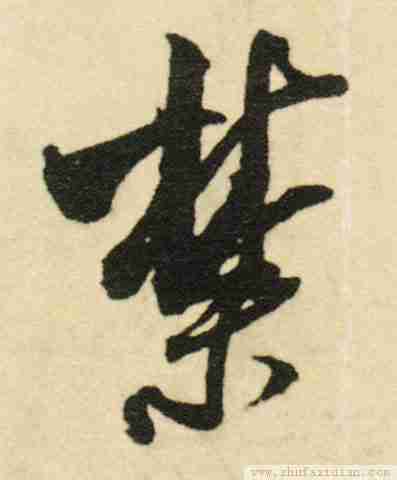 禁
www.zhufazidian.com